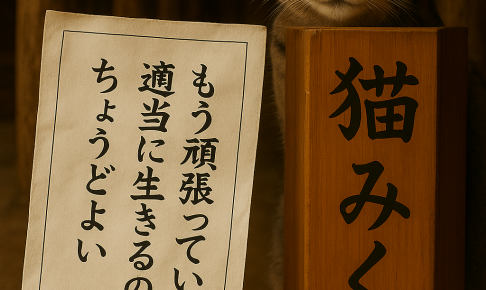 もう頑張ってい
適当に生きるの
ちょうどよい
猫みく